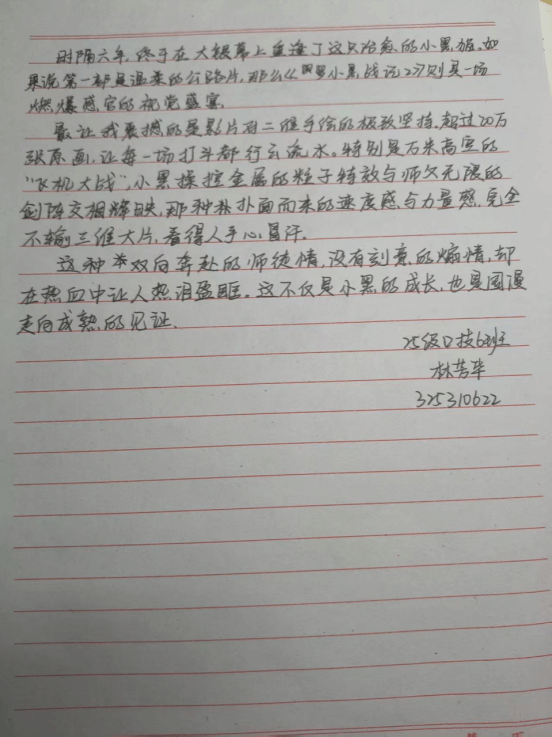 时隔六年,终于在大银幕上重逢了这只治愈的小黑猫。如
果说第一部是温柔的公路片,那么《罗小黑战记2》则是一场
燃爆感官的视觉盛宴。
最让我震撼的是影片对二维手绘的极致坚持。超过20万
张原画,让每一场打斗都行云流水。特别是万米高空的
“飞机大战”,小黑操控金属的粒子特效与师父无限的
剑阵交相辉映,那种扑面而来的速度感与力量感,完全
不输三维大片,看得人手心冒汗。
这种双向奔赴的师徒情,没有刻意的煽情,却
在热血中让人热泪盈眶。这不仅是小黑的成长,也是国漫
走向成熟的见证。
25级口技6班
林芳华
325310622